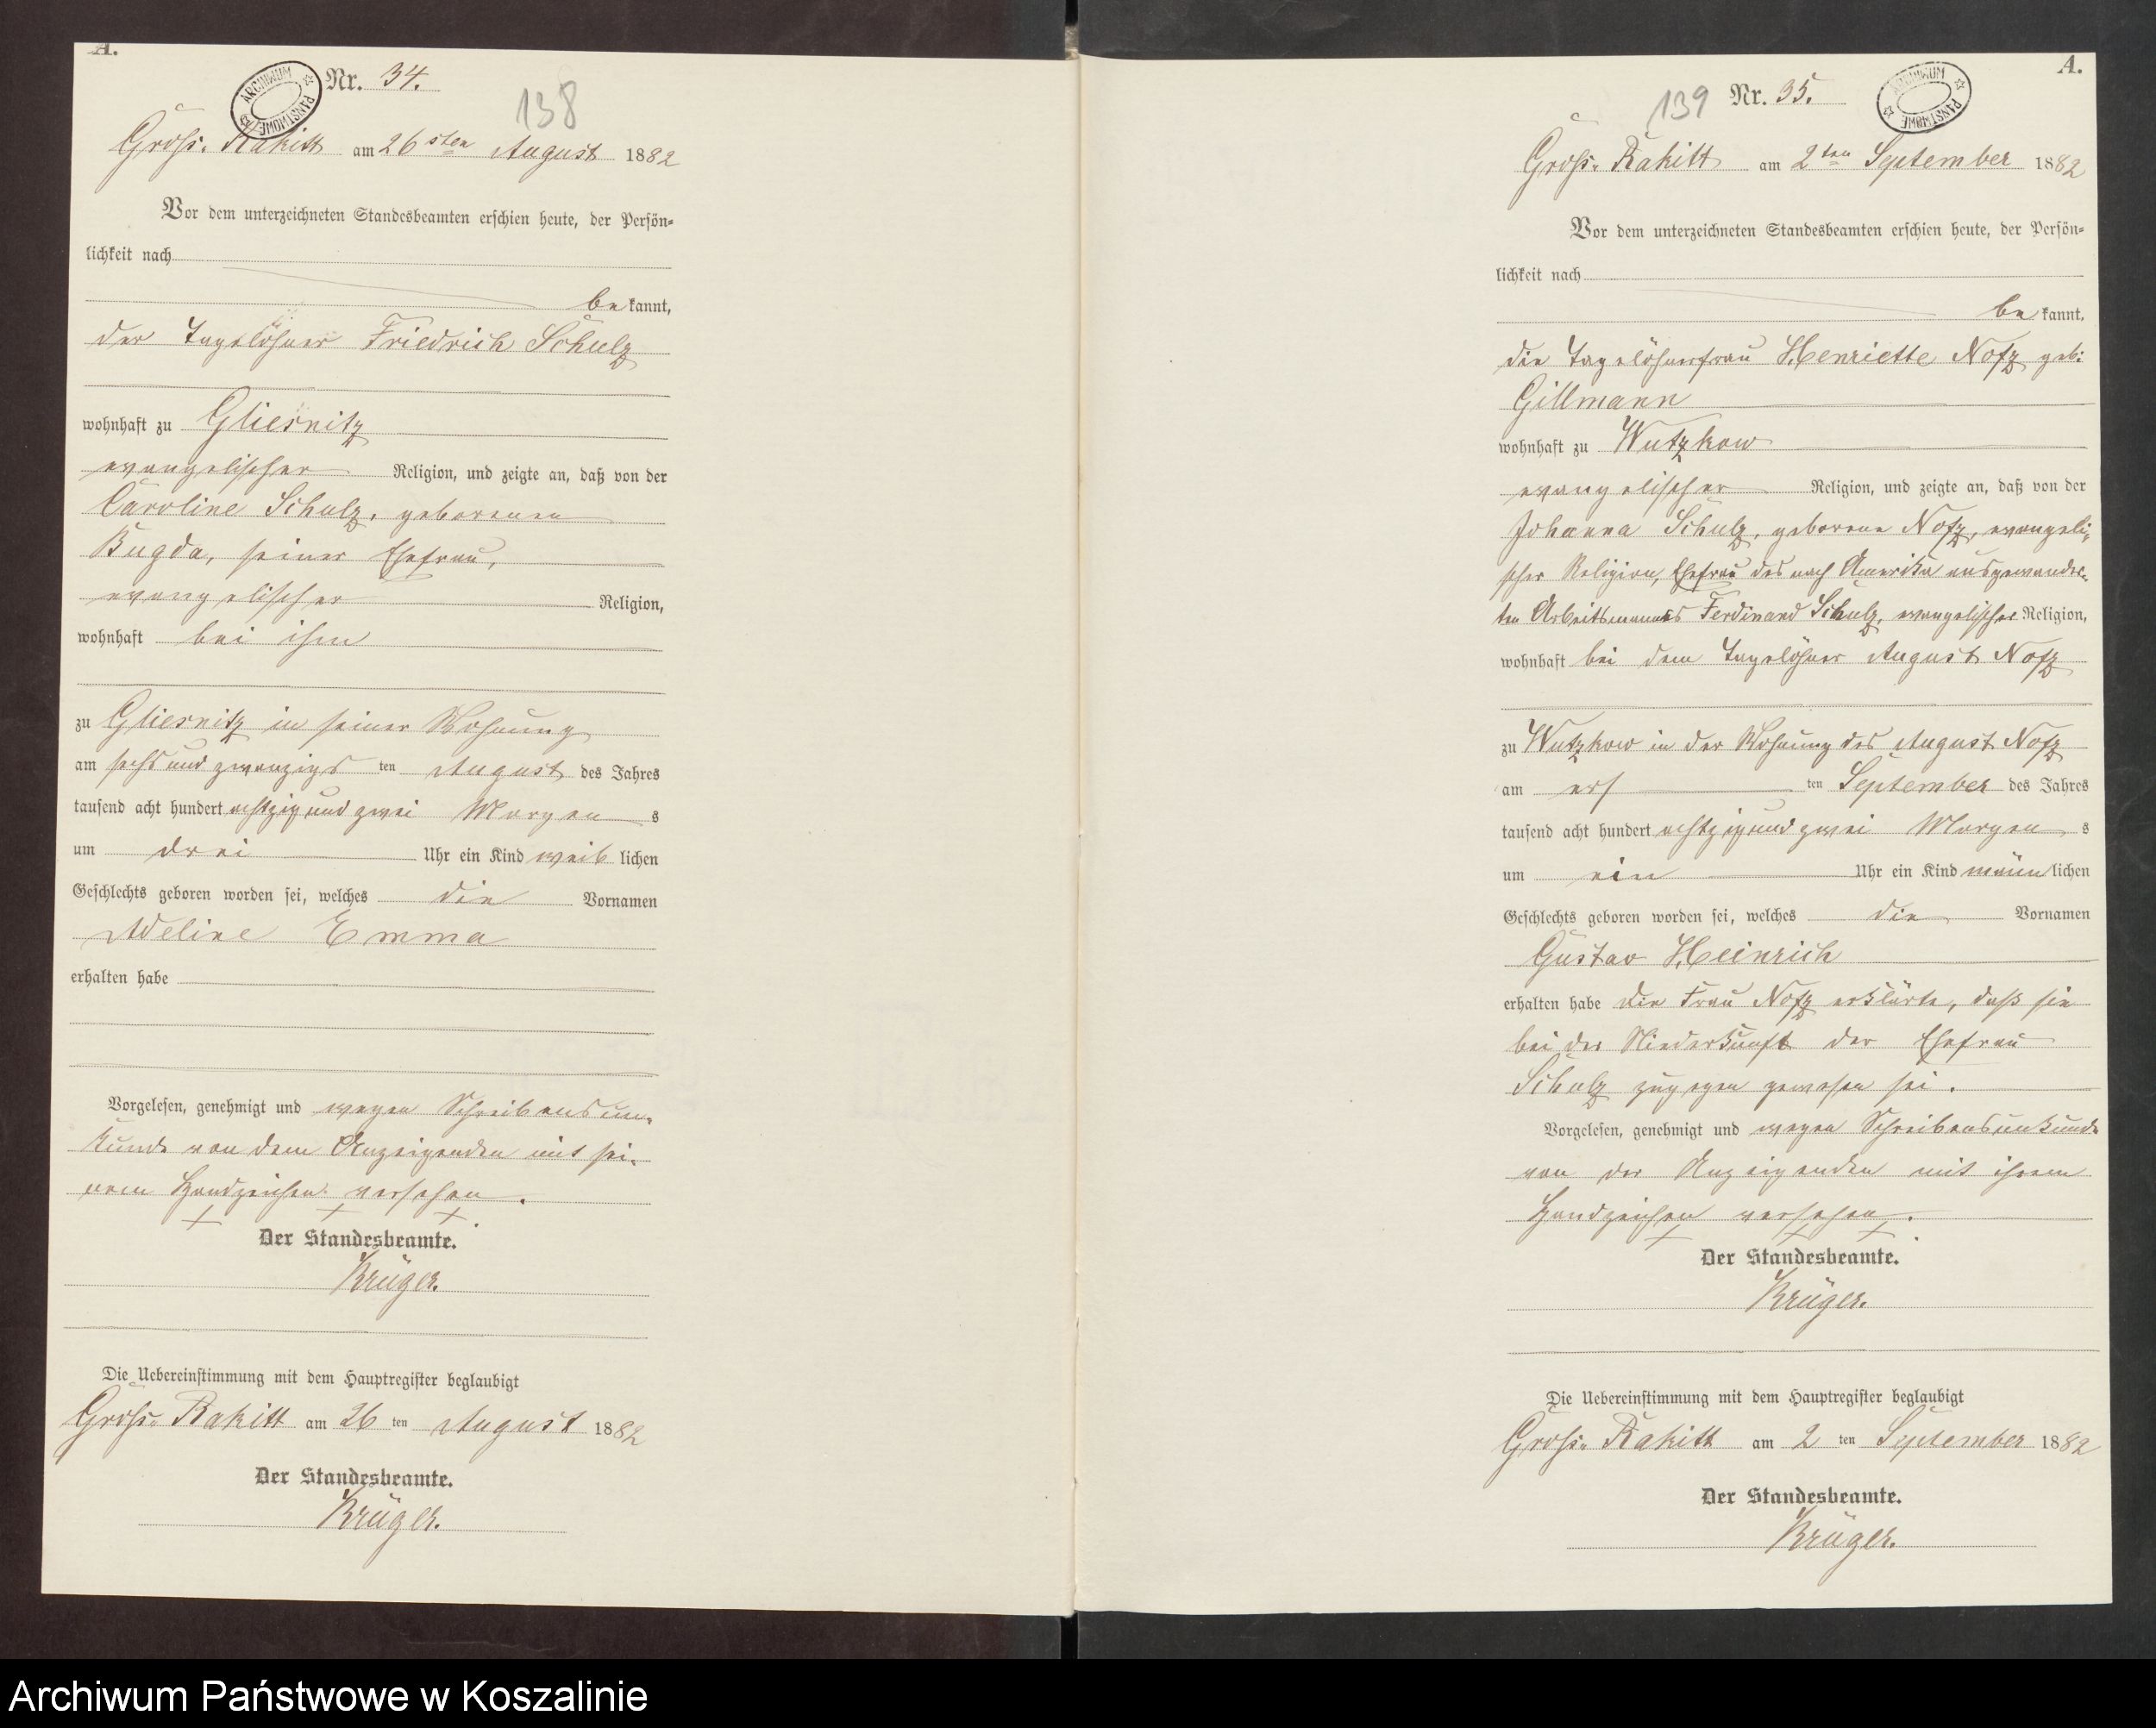 A.
ARCHIWUM PAŃSTWOWE
Nr. 34.
138
Groß-Rakitt am 26sten August 1882
Vor dem unterzeichneten Standesbeamten erschien heute, der Persön-
lichkeit nach
bekannt,
der Tagelöhner Friedrich Schulz
wohnhaft zu Gliesnitz
evangelischer Religion, und zeigte an, daß von der
Caroline Schulz, geborenen
Bugda, seiner Ehefrau,
evangelischer Religion,
wohnhaft bei ihm
zu Gliesnitz in seiner Wohnung
am sechs und zwanzigsten August des Jahres
tausend acht hundert achtzig und zwei Morgens
um drei Uhr ein Kind weiblichen
Geschlechts geboren worden sei, welches die Vornamen
Adeline Emma
erhalten habe
Vorgelesen, genehmigt und wegen Schreibensun-
kunde von dem Anzeigenden mit sei-
nem Handzeichen versehen.
+ + +
Der Standesbeamte.
Krüger.
Die Uebereinstimmung mit dem Hauptregister beglaubigt
Groß-Rakitt am 26ten August 1882
Der Standesbeamte.
Krüger.
A.
139
Nr. 35.
ARCHIWUM PAŃSTWOWE
Groß-Rakitt am 2ten September 1882
Vor dem unterzeichneten Standesbeamten erschien heute, der Persön-
lichkeit nach
bekannt,
die Tagelöhnerfrau Henriette Notz geb:
Gillmann
wohnhaft zu Wutzkow
evangelischer Religion, und zeigte an, daß von der
Johanna Schulz, geborene Notz, evangeli-
scher Religion, Ehefrau des nach Amerika ausgewander-
ten Arbeitsmannes Ferdinand Schulz, evangelischer Religion,
wohnhaft bei dem Tagelöhner August Notz
zu Wutzkow in der Wohnung des August Notz
am ersten September des Jahres
tausend acht hundert achtzig und zwei Morgens
um ein Uhr ein Kind männlichen
Geschlechts geboren worden sei, welches die Vornamen
Gustav Heinrich
erhalten habe Die Frau Notz erklärte, daß sie
bei der Niederkunft der Ehefrau
Schulz zugegen gewesen sei.
Vorgelesen, genehmigt und wegen Schreibensunkunde
von der Anzeigenden mit ihrem
Handzeichen versehen.
+ + +
Der Standesbeamte.
Krüger.
Die Uebereinstimmung mit dem Hauptregister beglaubigt
Groß-Rakitt am 2ten September 1882
Der Standesbeamte.
Krüger.
Archiwum Państwowe w Koszalinie